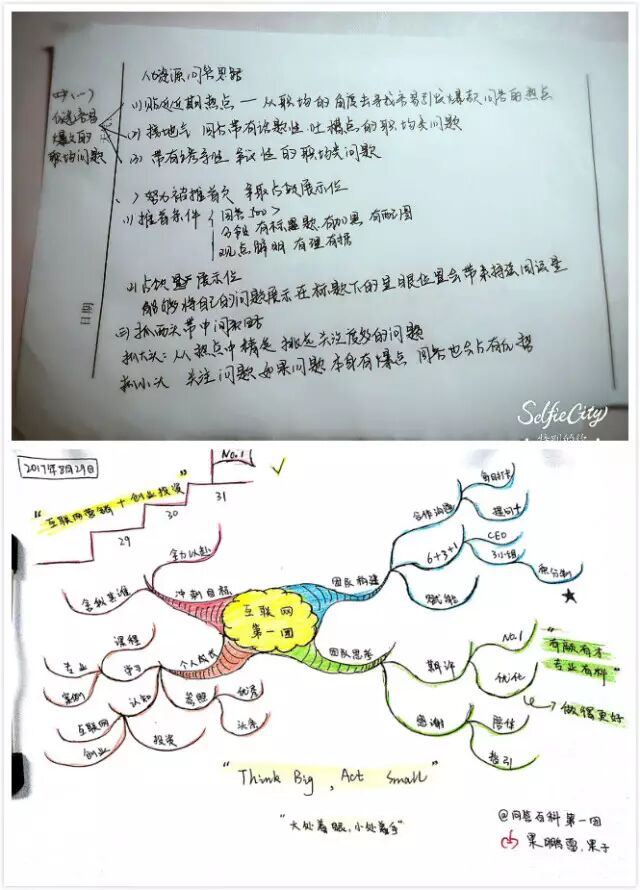 问答思路
(1) 贴近近期热点 — 从职场的角度去寻找容易引出爆款问答的热点
(2) 接地气 问答带有话题性 吐槽点的职场类问题
(3) 带有 争议性的职场类问题
优选容易
爆文的
职场问题
努力被推首页 争取占领展示位
(1) 推首条件
分段 有标题 有加黑 有配图
观点鲜明 有理有据
(2) 展示位
能够将自己的问题展示在标题下的显眼位置会带来
抓两头带中间
抓大头: 从热点中精选 挑选关注度较高的问题
抓小头 关注问题 如果问题本身有爆点 问答也会占有优势
日期
SelfieCity
特别的你
2017年8月29日
No.1
"互联网营销+创业投资"
31
30
29
全力以赴
舍我其谁
冲刺目标
互联网
第一团
团队构建
合作沟通
每日打卡
提问+
6+3+1
CEO
3小组
积分制
赋能
个人成长
学习
课程
专业
案例
认知
互联网
创业
投资
参照
优秀
头条
团队思考
期许
No.1
优化
"有颜有才
专业有料"
做得更好
感谢
指引
"Think Big, Act Small"
"大处着眼,小处着手"
@问答百科第一团
果鹏雷.果子